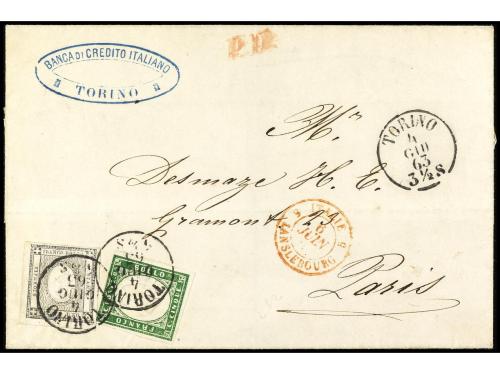 P.D.
BANCA DI CREDITO ITALIANO
TORINO
Mr
Desmaze H. E.
Gramont 23
Paris
TORINO
4
GIU
63
3½ S
ITALIE
5
6
JUIN
5
LANSLEBOURG
TORINO
4
GIU
63
TORINO
4
GIU
63
FRANCO